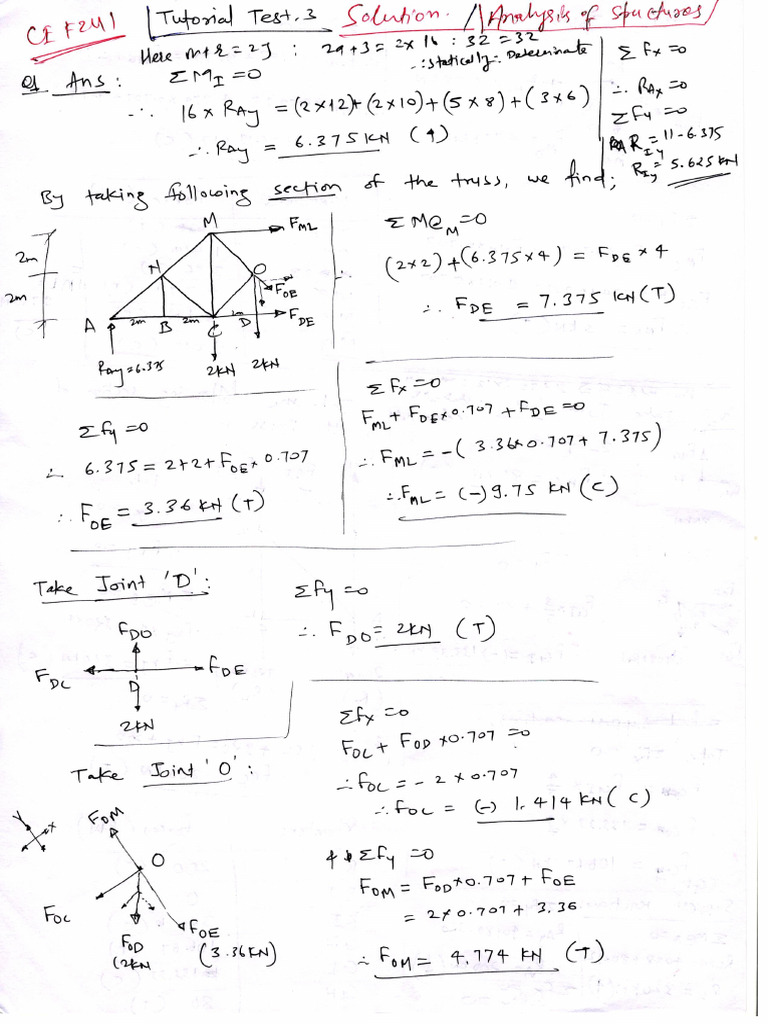 CE F241 | Tutorial Test.3 Solution. / Analysis of Structures /
Here m+r=2j : 29+3=2x16 : 32=32
∴ statically Determinate
Q1 Ans: ΣM@I=0
∴ 16 x RAy = (2x12)+(2x10)+(5x8)+(3x6)
∴ RAy = 6.375KN (↑)
Σ Fx=0
∴ RAx=0
Σ Fy=0
RIy = 11-6.375
RIy = 5.625 KN
By taking following section of the truss, we find;
M
FML
2m
2m
N
O
FOE
FDE
A
2m
B
2m
C
1m
D
RAy=6.375
2KN
2KN
Σ M@M=0
(2x2)+(6.375x4) = FDE x 4
∴ FDE = 7.375 KN(T)
Σfy=0
∴ 6.375=2+2+FOE x 0.707
∴ FOE = 3.36KN (T)
Σfx=0
FML + FDE x 0.707 + FDE=0
∴ FML = -( 3.36x0.707+ 7.375)
∴ FML = (-) 9.75 KN (C)
Take Joint 'D':
FDO
FDC
FDE
D
2KN
Σfy=0
∴ FDO= 2KN (T)
Take Joint 'O':
Y
X
FOM
O
FOC
FOD
(2KN
FOE
(3.36KN)
Σfx=0
FOC + FOD x0.707=0
∴ fOC = - 2 x 0.707
∴ fOC = (-) 1.414 KN( C)
Σfy =0
FOM = FOD x0.707+ FOE
= 2x0.707+ 3.36
∴ FOM = 4.774 KN (T)